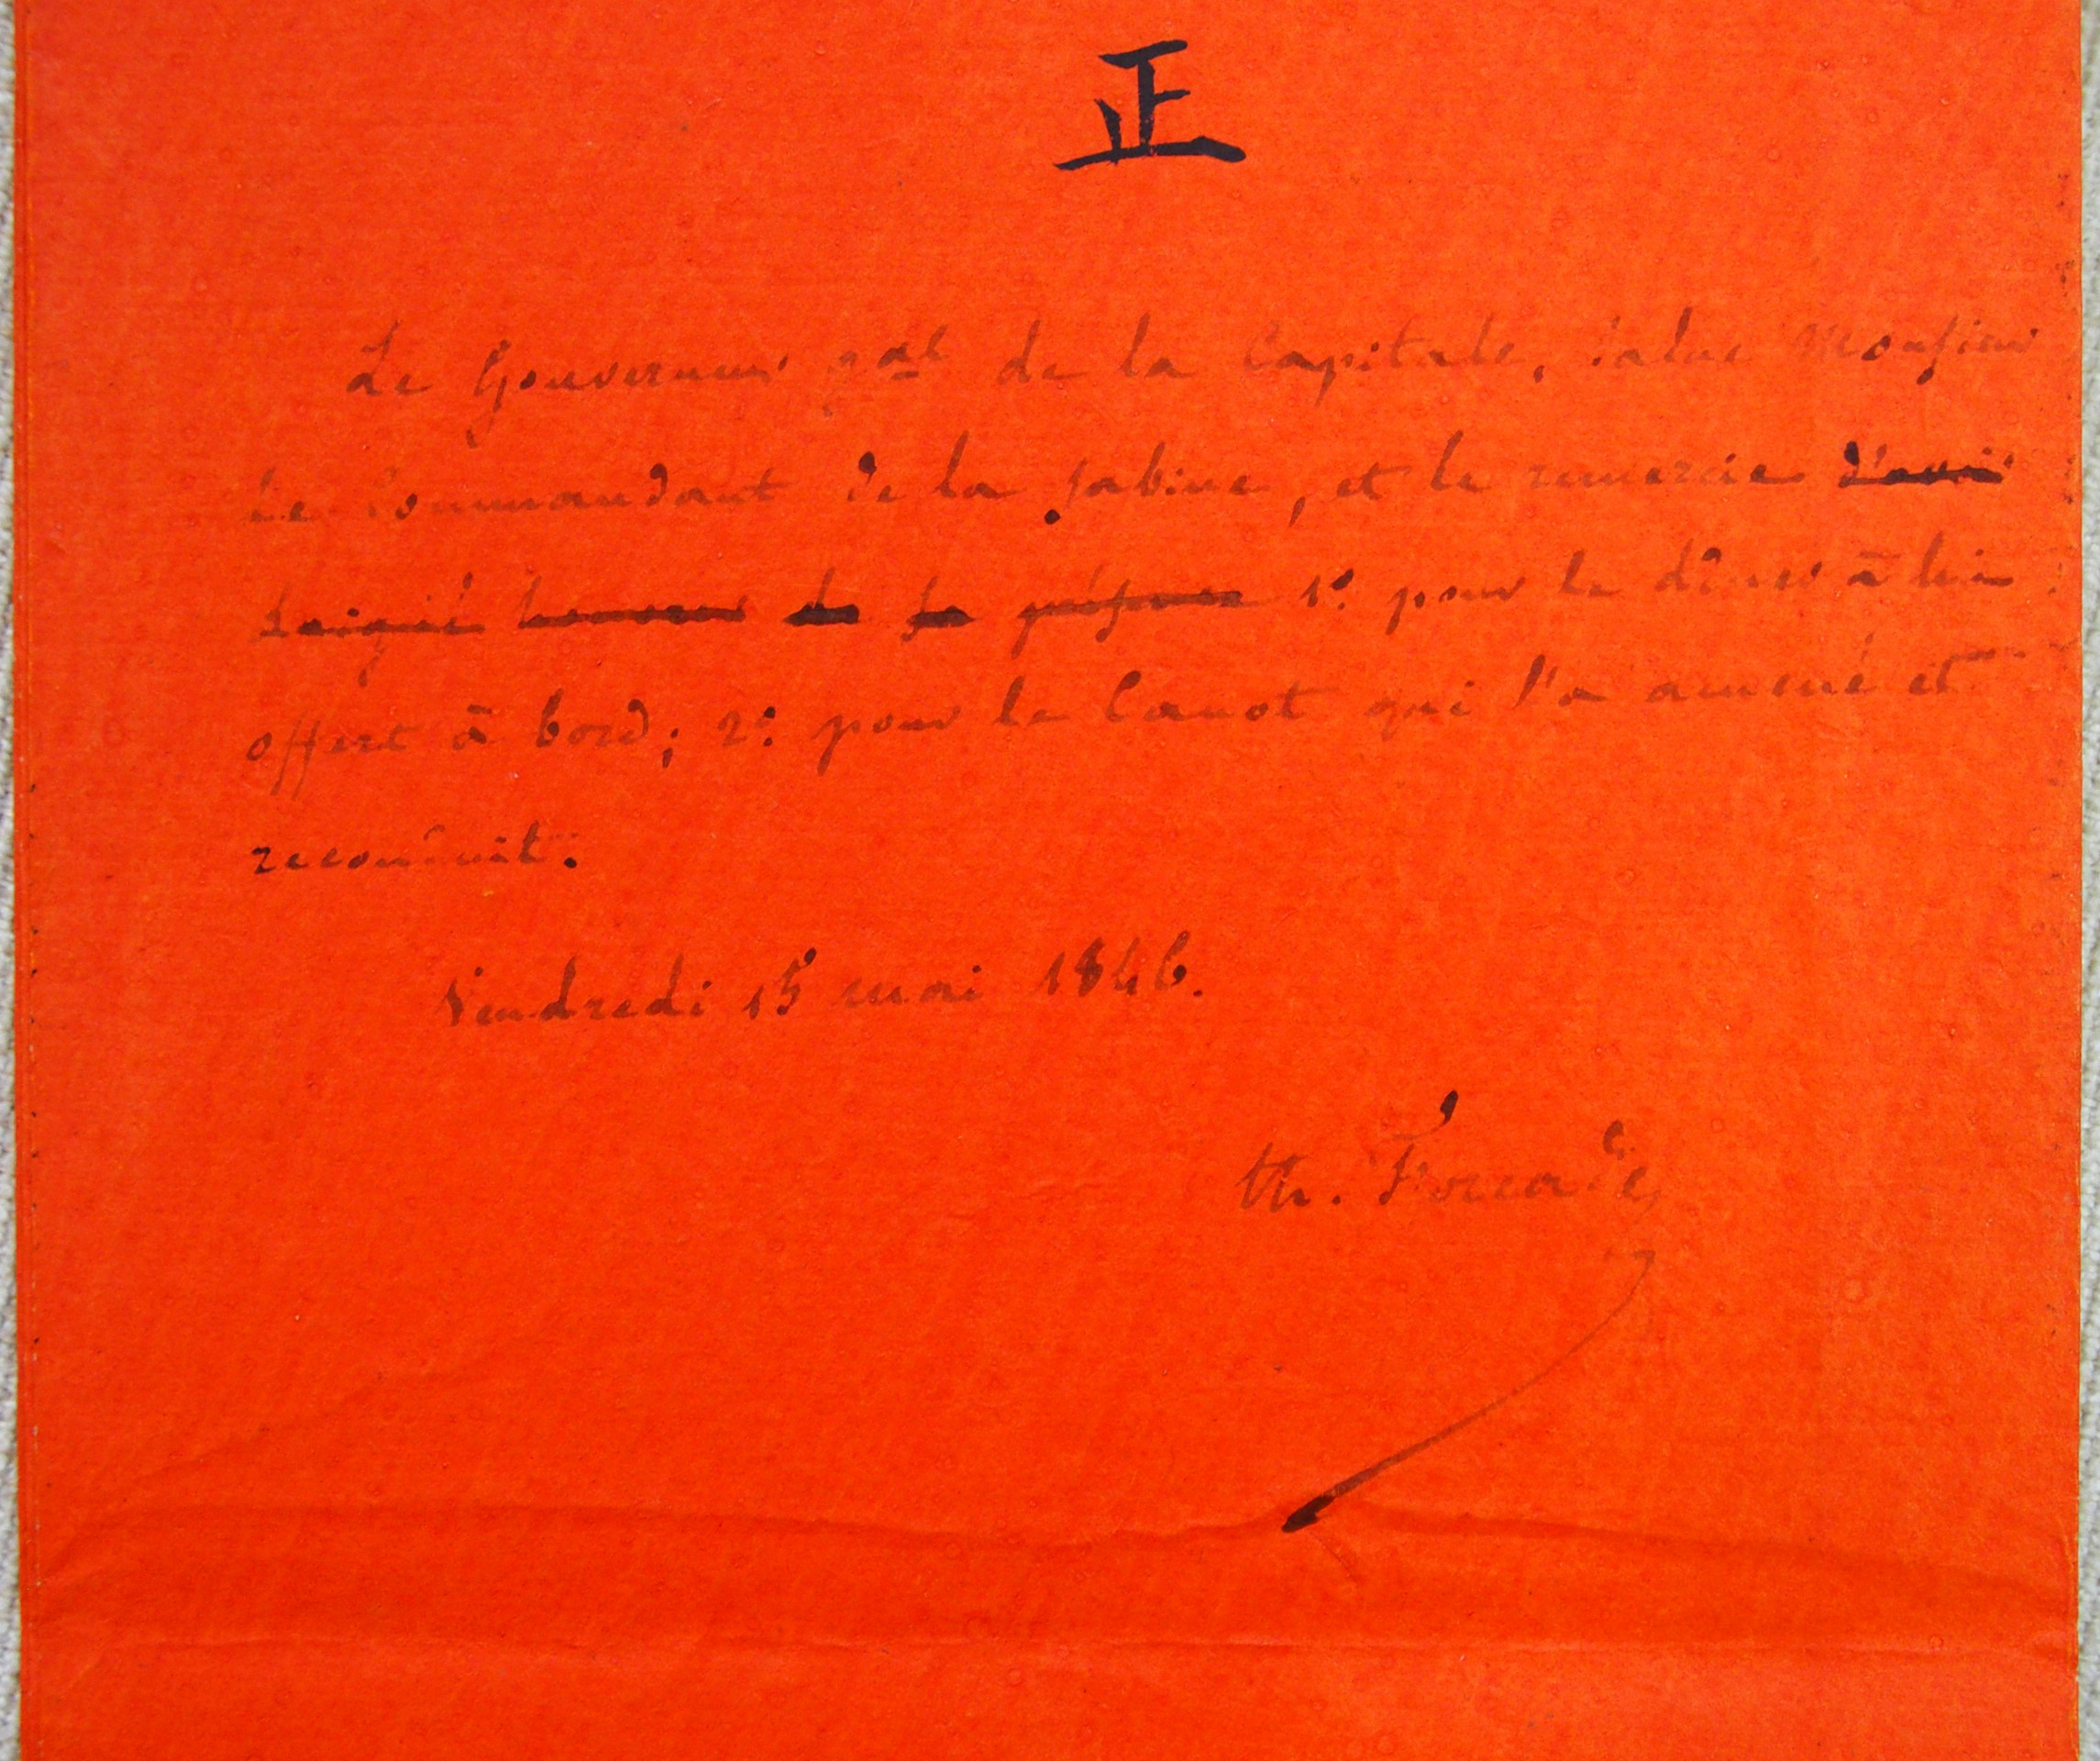 正
Le Gouverneur gal de la Capitale, salue Monsieur
le Commandant de la Sabine, et le remercie d'avoir
daigné honorer de sa présence 1º pour le dîner à lui
offert à bord; 2º pour le Canot qui l'a amené et
reconduit.
Vendredi 15 mai 1846.
th. Forcade